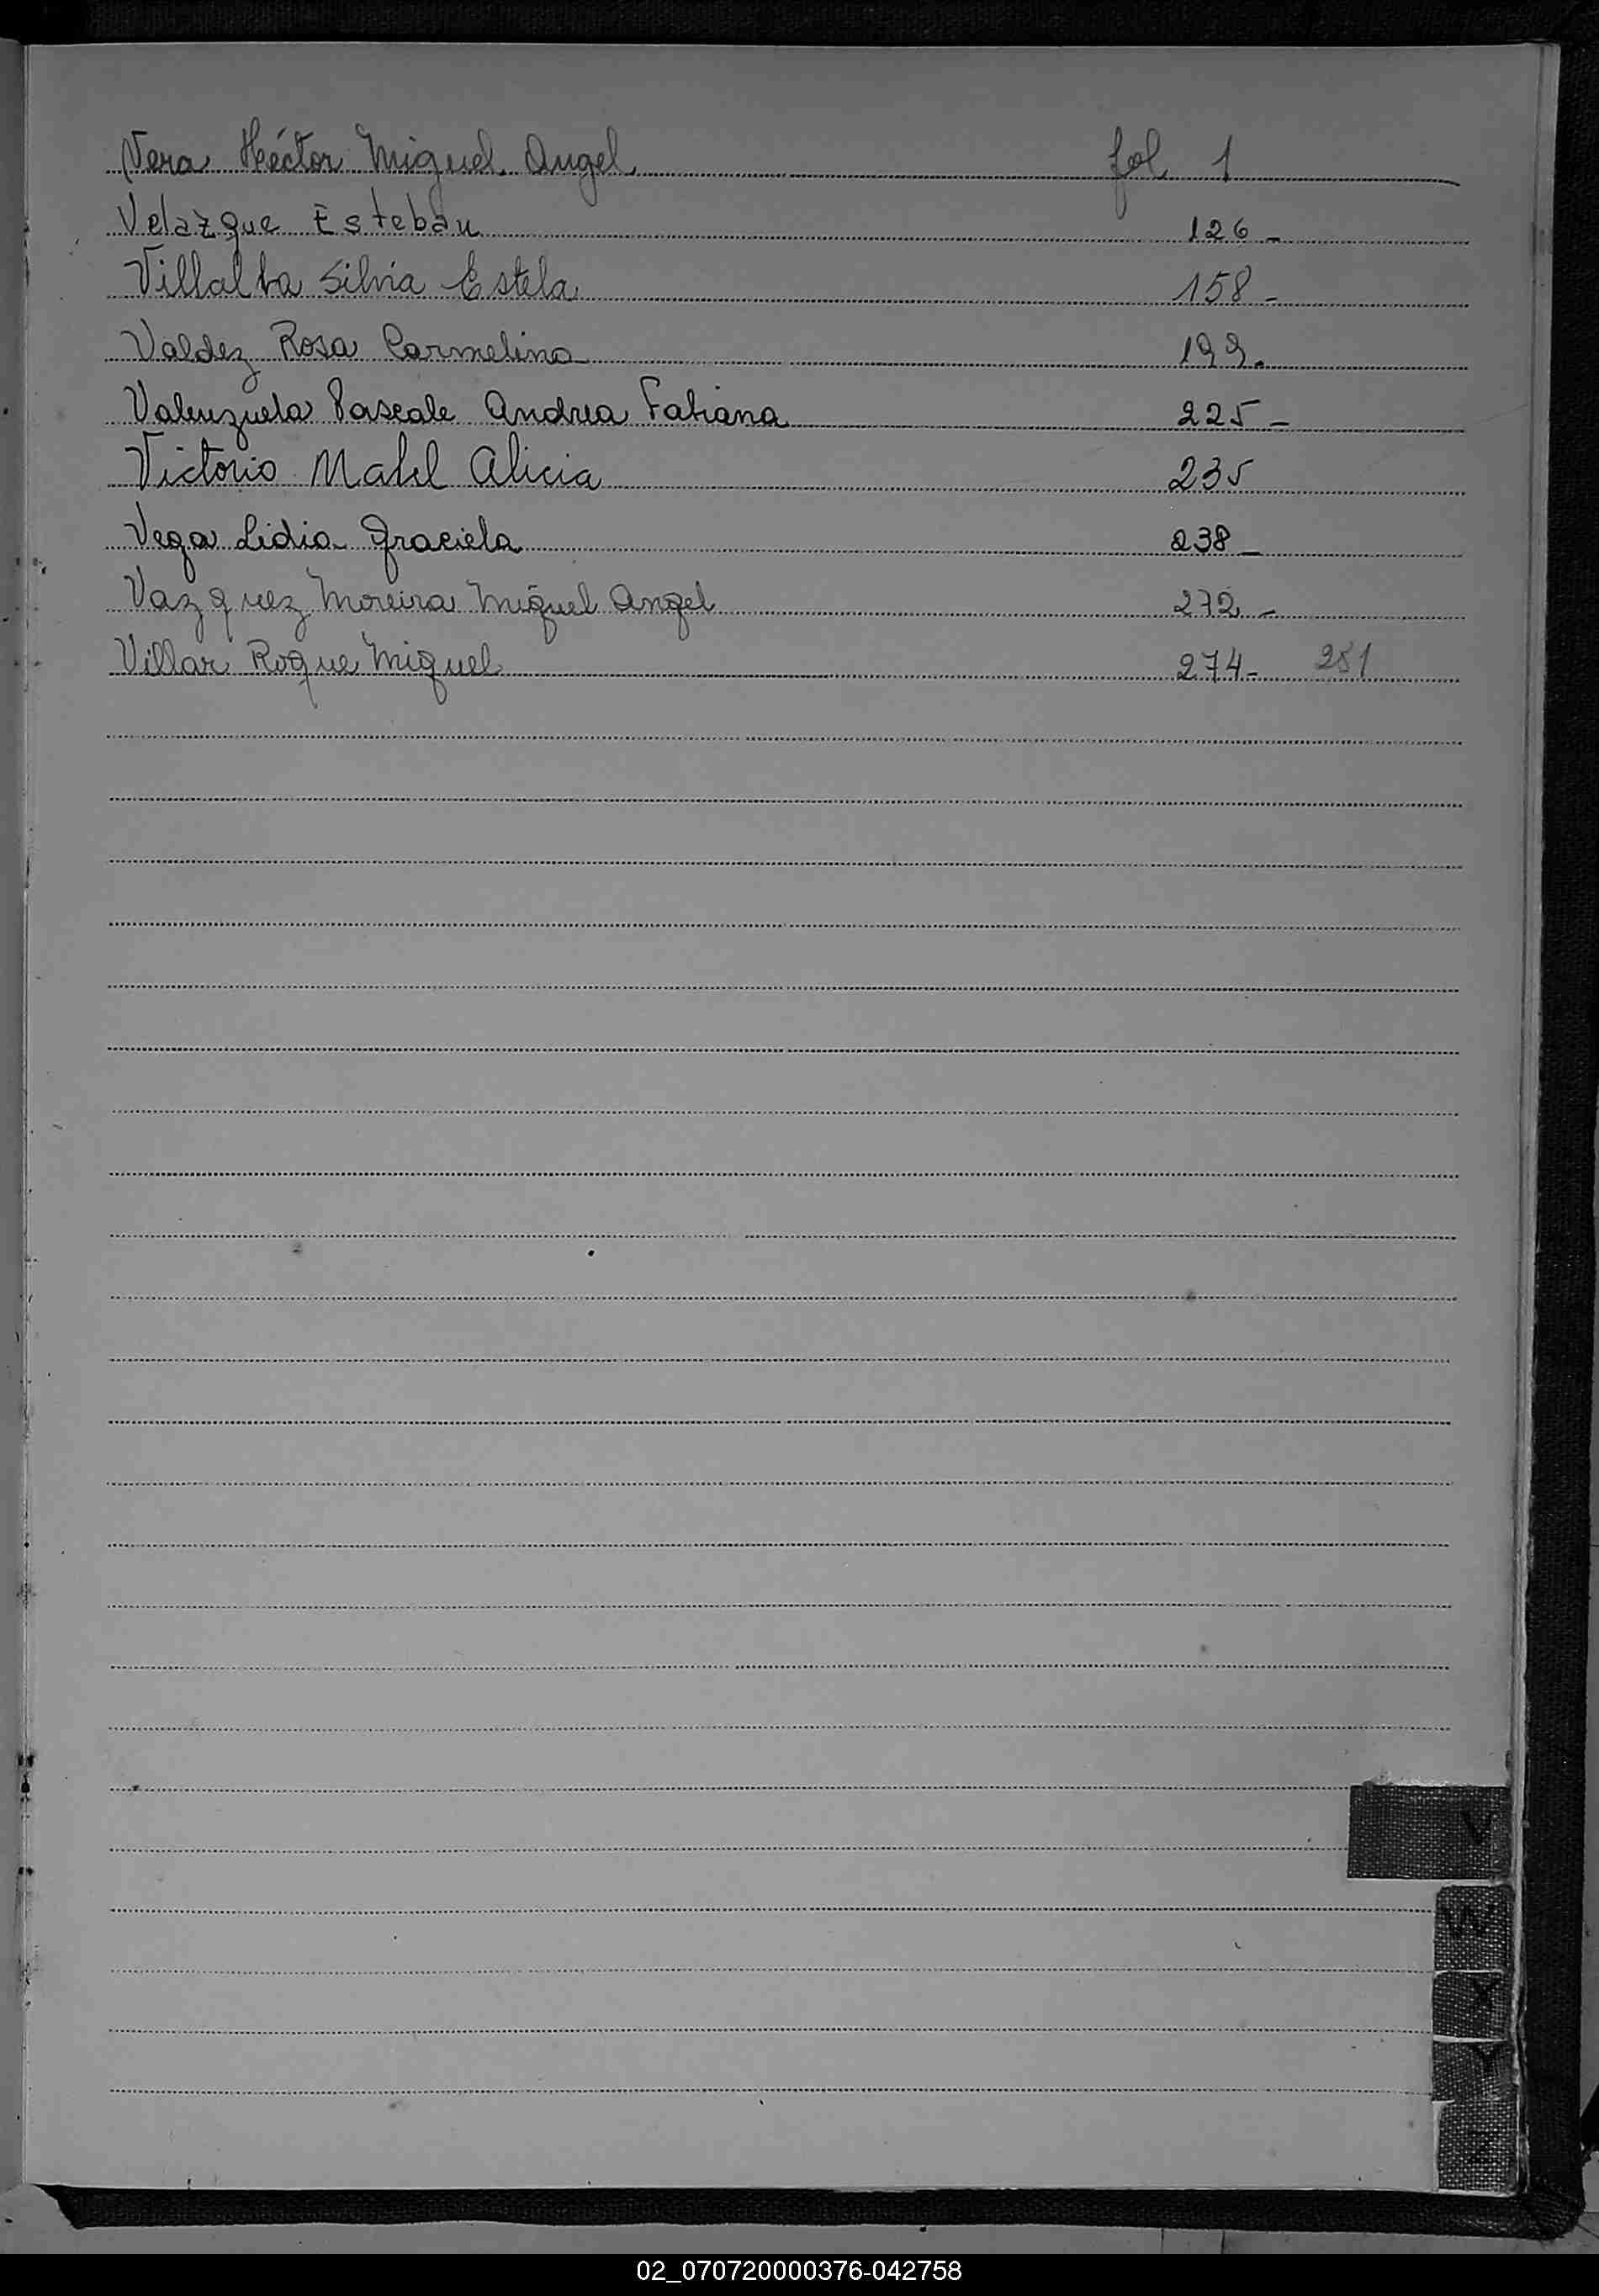 Vera Héctor Miguel Angel fol 1
Velazque Esteban 126-
Villalba Silvia Estela 158-
Valdez Rosa Carmelina 199.
Valenzuela Pascale Andrea Fabiana 225-
Victorio Mabel Alicia 235
Vega Lidia Graciela 238-
Vazquez Moreira Miguel Angel 272-
Villar Roque Miguel 274- 281
V
W
X
Y
02_070720000376-042758